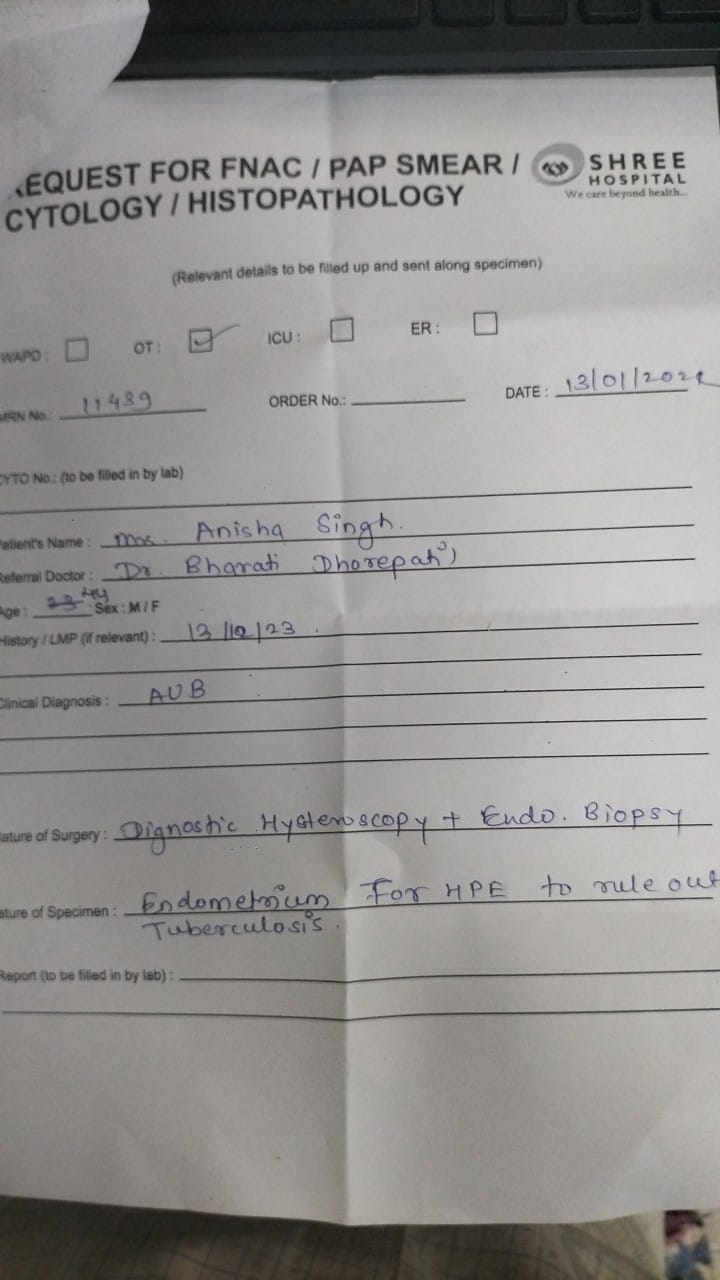 EQUEST FOR FNAC / PAP SMEAR /
CYTOLOGY / HISTOPATHOLOGY
SHREE
HOSPITAL
We care beyond health...
(Relevant details to be filled up and sent along specimen)
WAPD : OT : ICU : ER :
MRN No.: 11489 ORDER No.: DATE : 13/01/202
CYTO No.: (to be filled in by lab)
Patient's Name : Anisha Singh.
Referral Doctor : Dr. Bharati
Age : 23 Sex : M / F
History / LMP (if relevant) : 13/12/23.
Clinical Diagnosis : AUB
Nature of Surgery : Dignostic Hysteroscopy + Endo. Biopsy
Nature of Specimen : Endometrium For HPE to rule out
Tuberculosis.
Report (to be filled in by lab) :